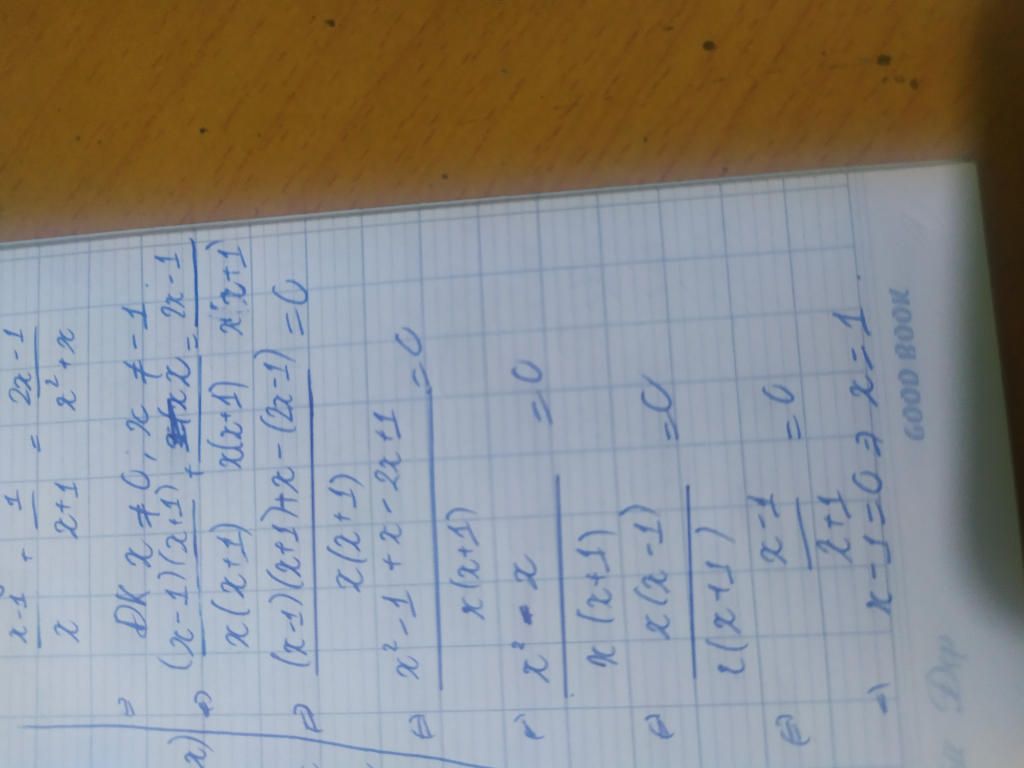 x-1/x + 1/x+1 = 2x-1/x²+x
=> ĐK x ≠ 0, x ≠ -1
x)
=> (x-1)(x+1)/x(x+1) + x/x(x+1) = 2x-1/x(x+1)
=> (x-1)(x+1)+x-(2x-1)/x(x+1) = 0
=> x²-1+x-2x+1/x(x+1) = 0
=> x²-x/x(x+1) = 0
=> x(x-1)/x(x+1) = 0
=> x-1/x+1 = 0
=> x-1=0 => x=1.
6000 BOOK
Đẹp